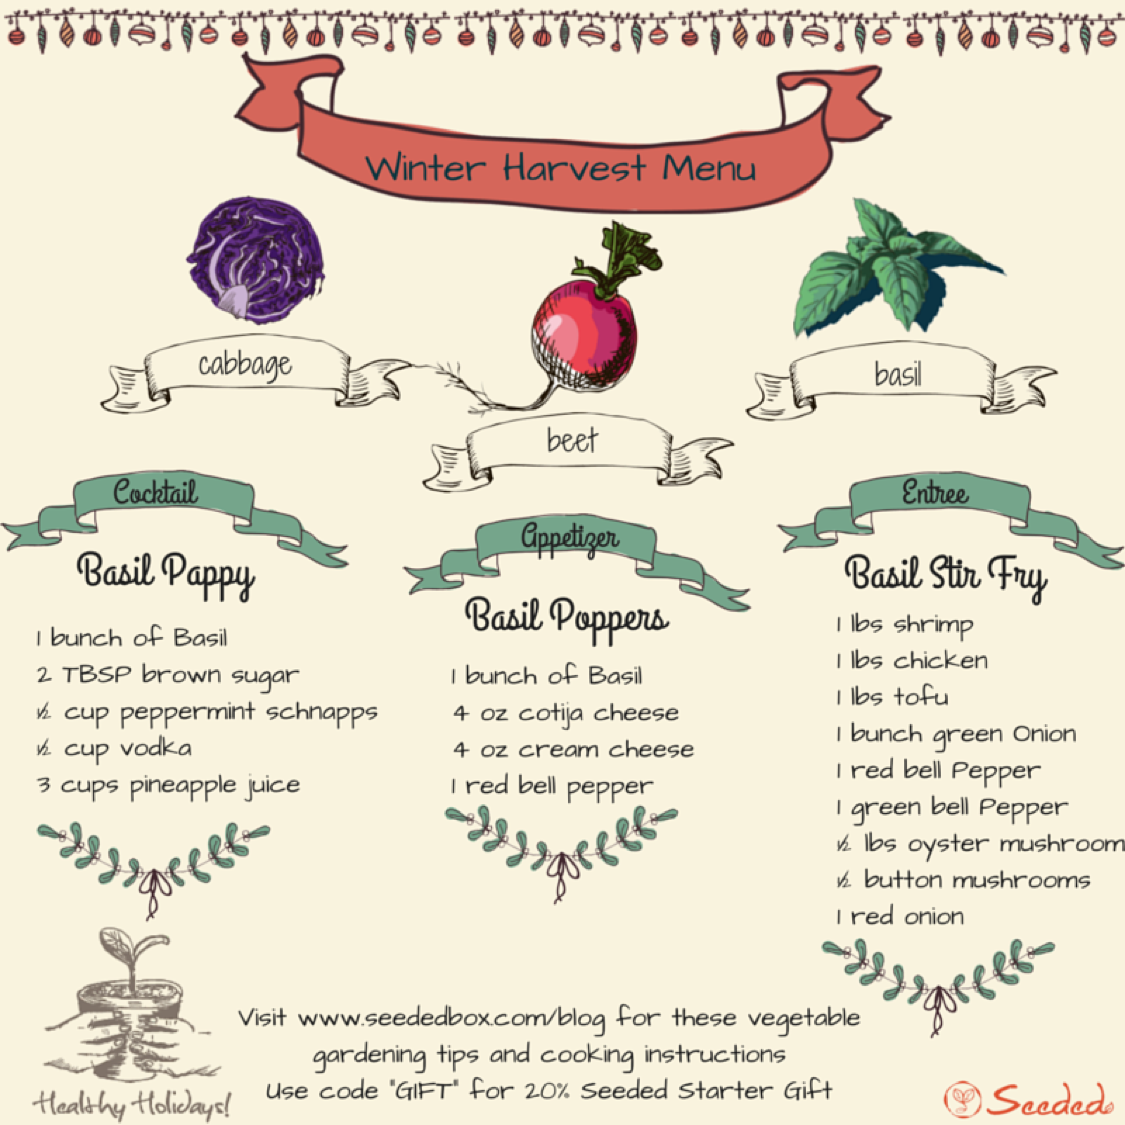 Winter Harvest Menu
cabbage
beet
basil
Cocktail
Basil Pappy
1 bunch of Basil
2 TBSP brown sugar
½ cup peppermint schnapps
½ cup vodka
3 cups pineapple juice
Appetizer
Basil Poppers
1 bunch of Basil
4 oz cotija cheese
4 oz cream cheese
1 red bell pepper
Entree
Basil Stir Fry
1 lbs shrimp
1 lbs chicken
1 lbs tofu
1 bunch green Onion
1 red bell Pepper
1 green bell Pepper
½ lbs oyster mushroom
½ button mushrooms
1 red onion
Healthy Holidays!
Visit www.seededbox.com/blog for these vegetable
gardening tips and cooking instructions
Use code "GIFT" for 20% Seeded Starter Gift
Seeded